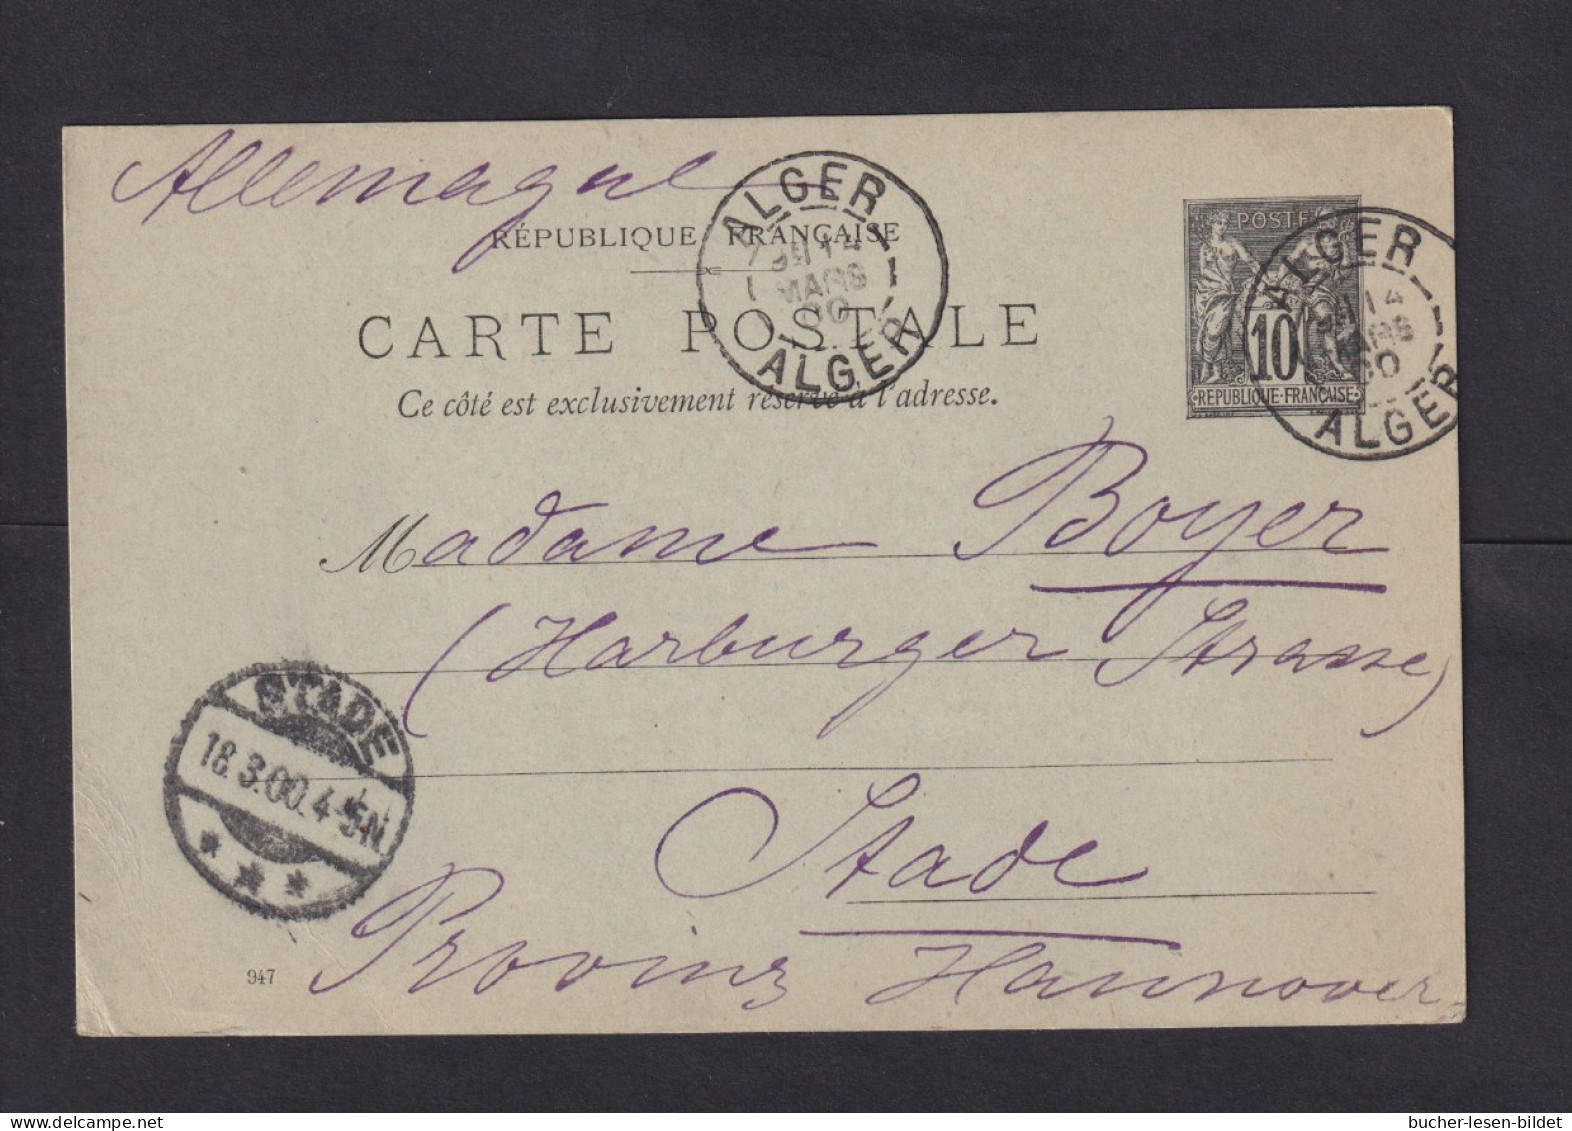 Allemagne
RÉPUBLIQUE FRANÇAISE
CARTE POSTALE
Ce côté est exclusivement réservé à l'adresse.
ALGER
14
MARS
00
ALGER
POSTES
10
REPUBLIQUE·FRANÇAISE
ALGER
14
MARS
00
ALGER
Madame Boyer
(Harburger Strasse)
Stade
Provinz Hannover
STADE
18.3.00.4-5N
947
bucher-lesen-bildet